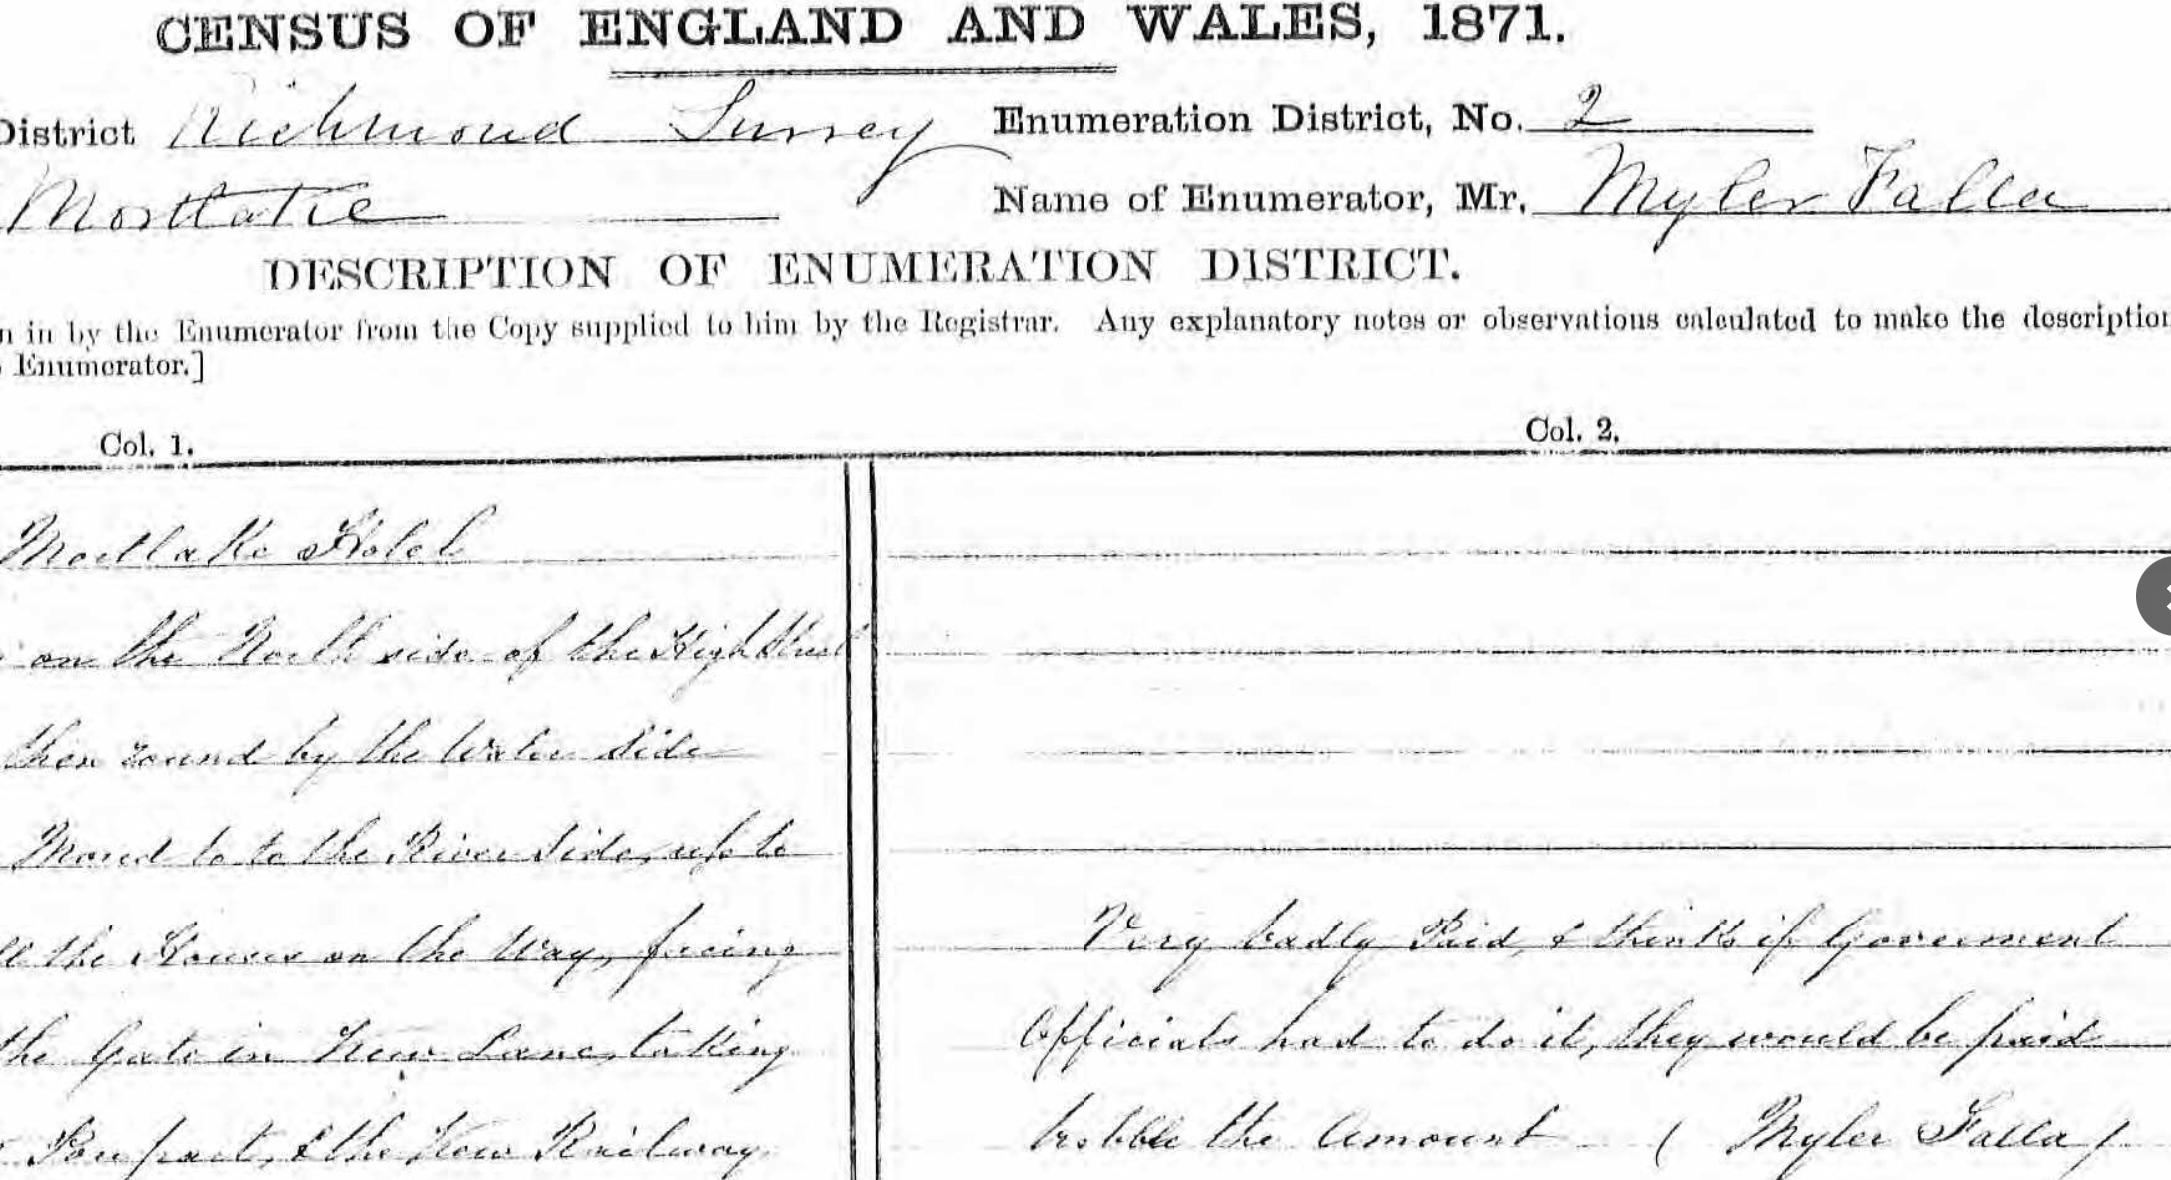 CENSUS OF ENGLAND AND WALES, 1871.
District Richmond Surrey Enumeration District, No. 2
Mortlake Name of Enumerator, Mr. Myler Falla
DESCRIPTION OF ENUMERATION DISTRICT.
n in by the Enumerator from the Copy supplied to him by the Registrar. Any explanatory notes or observations calculated to make the description
Enumerator.]
Col. 1. Col. 2.
Mortlake Hotel
on the North side of the High Street
then round by the Water Side
to to the River Side, up to
the Houses on the Way, facing
Very badly Paid, & thinks if Goverment
the Gate in Kew Lane, taking
Officials had to do it, they would be paid
part, & the Kew Railway
the Amount (Myler Falla)